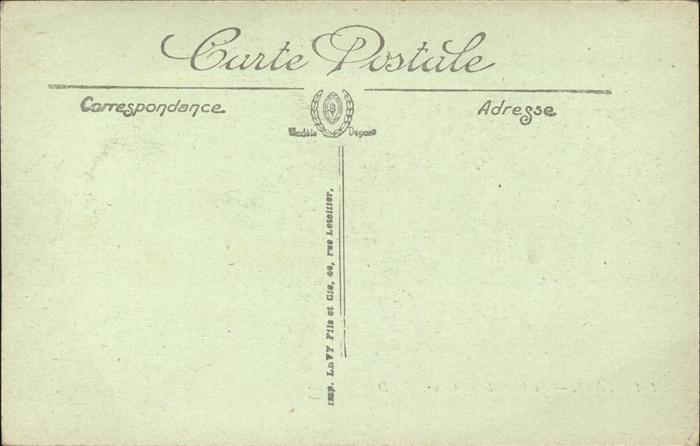 Carte Postale
Correspondance
Adresse
Modèle Déposé
Imp. LéVY Fils et Cie, 44, rue Letellier,